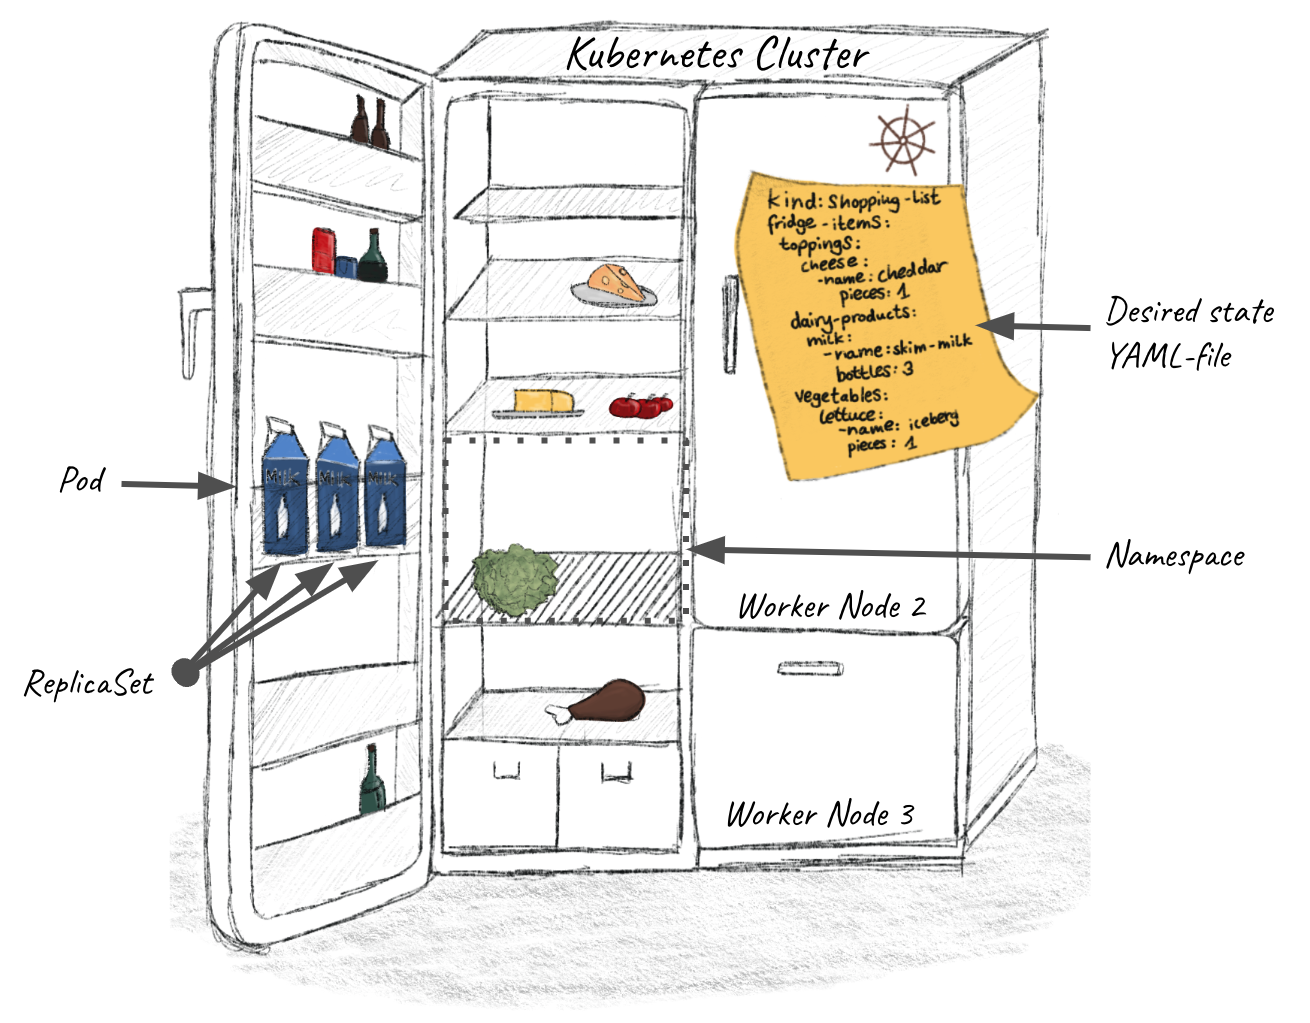 Kubernetes Cluster
kind: Shopping-list
fridge-items:
toppings:
cheese:
-name: cheddar
pieces: 1
dairy-products:
milk:
-name: skim-milk
bottles: 3
vegetables:
lettuce:
-name: iceberg
pieces: 1
Desired state
YAML-file
Pod
Milk
Milk
Milk
Namespace
Worker Node 2
ReplicaSet
Worker Node 3